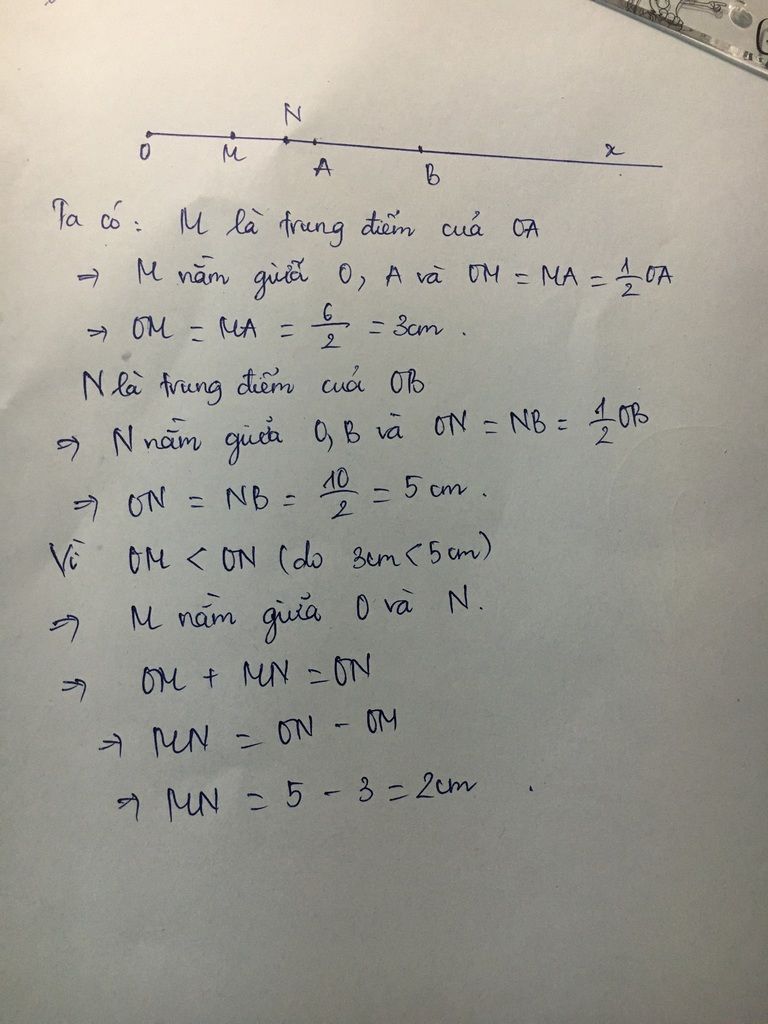 N
O M A B x
Ta có: M là trung điểm của OA
⇒ M nằm giữa O, A và OM = MA = 1/2 OA
⇒ OM = MA = 6/2 = 3cm.
N là trung điểm của OB
⇒ N nằm giữa O, B và ON = NB = 1/2 OB
⇒ ON = NB = 10/2 = 5 cm.
Vì OM < ON (do 3cm < 5cm)
⇒ M nằm giữa O và N.
⇒ OM + MN = ON
⇒ MN = ON - OM
⇒ MN = 5 - 3 = 2cm.